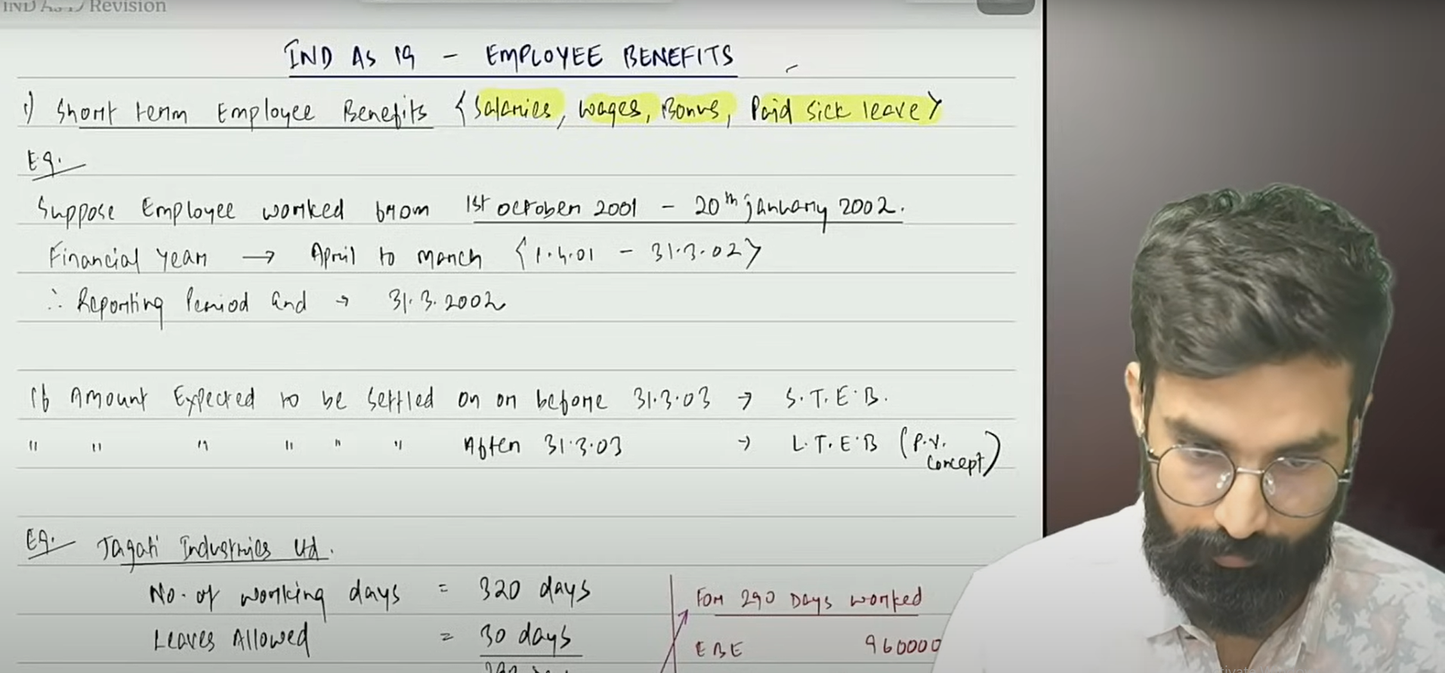 IND AS 19 Revision
IND AS 19 - EMPLOYEE BENEFITS
1) Short term Employee Benefits {Salaries, wages, Bonus, Paid sick leave}
Eg.
Suppose Employee worked from 1st october 2001 - 20th january 2002.
Financial year → April to march {1.4.01 - 31.3.02}
∴ Reporting Period End → 31.3.2002
If Amount Expected to be settled on or before 31.3.03 → S.T.E.B.
" " " " " " After 31.3.03 → L.T.E.B (P.V. Concept)
Eg. Jagati Industries Ltd.
No. of working days = 320 days
Leaves Allowed = 30 days
For 290 Days worked
EBE 960000